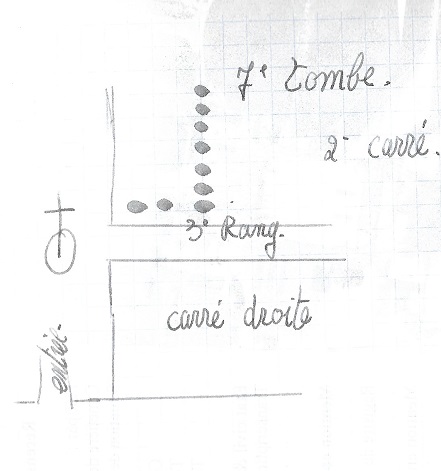 7e Tombe.
2e carré.
3e Rang.
carré droite
entrée.